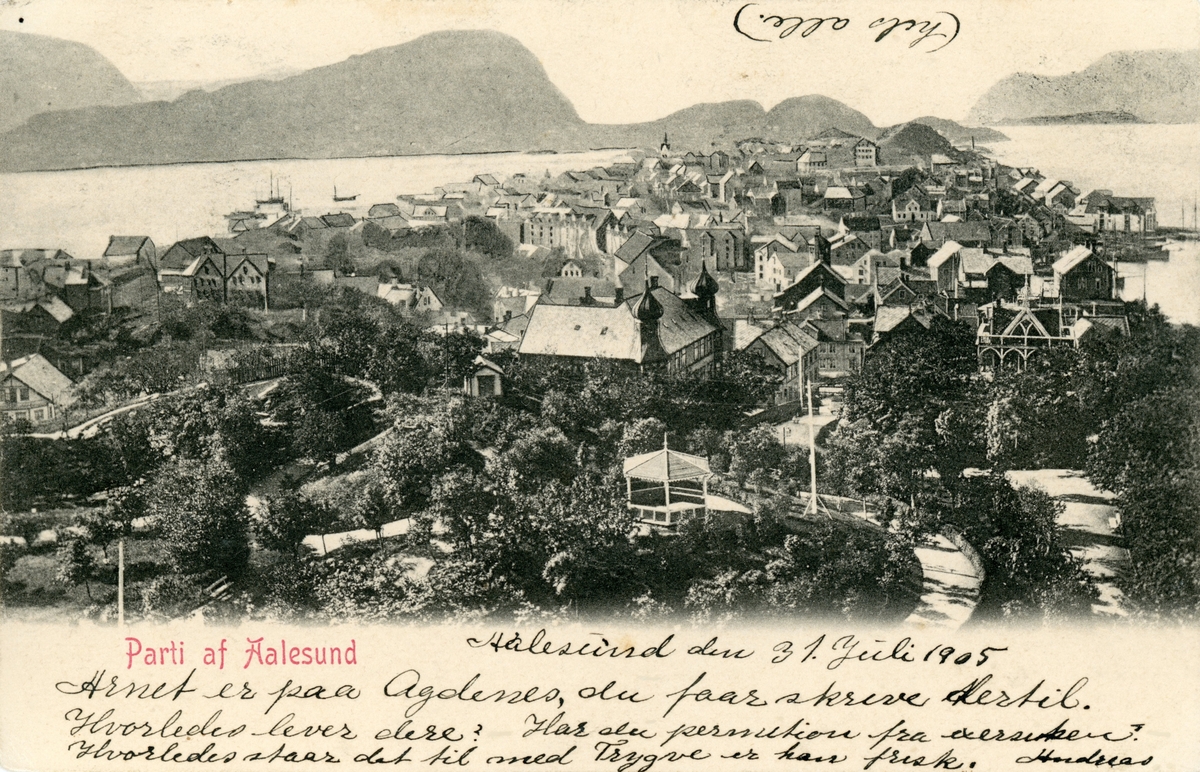 (hils alle.)
Parti af Aalesund
Aalesund den 31. Juli 1905
Arnet er paa Agdenes, du faar skrive dertil.
Hvorledes lever dere? Har du permition fra
Hvorledes staar det til med Trygve er han frisk. Andreas